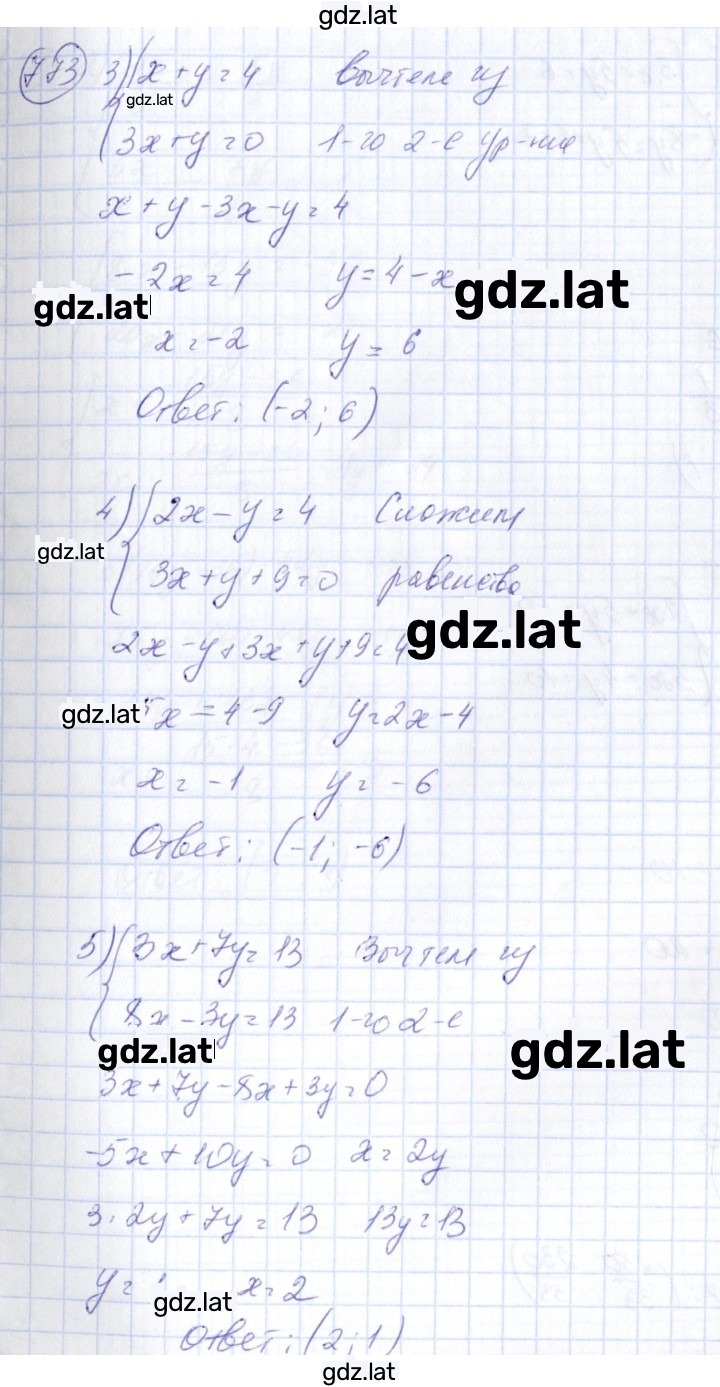 gdz.lat
773 3) { x + y = 4 Вычтем из
gdz.lat
3x + y = 0 1-го 2-е ур-ние
x + y - 3x - y = 4
- 2x = 4 y = 4 - x
gdz.lat gdz.lat
x = -2 y = 6
Ответ: (-2; 6)
4) { 2x - y = 4 Сложим
gdz.lat
3x + y + 9 = 0 равенства
gdz.lat
2x - y + 3x + y + 9 = 4
gdz.lat 5x = 4 - 9 y = 2x - 4
x = -1 y = -6
Ответ: (-1; -6)
5) { 3x + 7y = 13 Вычтем из
8x - 3y = 13 1-го 2-е
gdz.lat gdz.lat
3x + 7y - 8x + 3y = 0
-5x + 10y = 0 x = 2y
3 · 2y + 7y = 13 13y = 13
y = x = 2
gdz.lat
Ответ: (2; 1)
gdz.lat